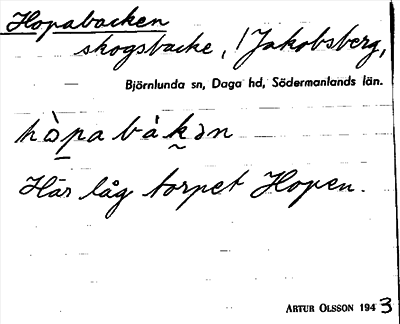 Hopabacken
skogsbacke, i Jakobsberg,
Björnlunda sn, Daga hd, Södermanlands län.
hòpabàkən
Här låg torpet Hopen.
ARTUR OLSSON 1943